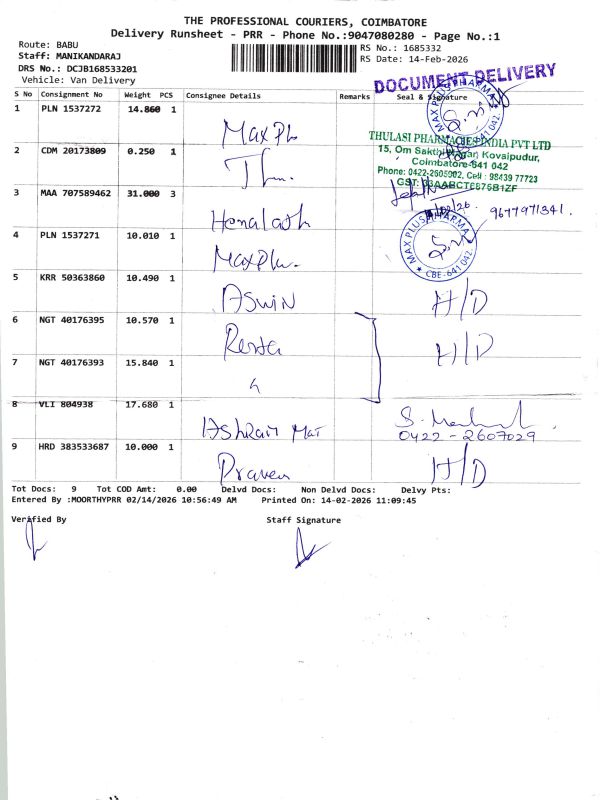 THE PROFESSIONAL COURIERS, COIMBATORE
Delivery Runsheet - PRR - Phone No.:9047080280 - Page No.:1
Route: BABU
Staff: MANIKANDARAJ
DRS No.: DCJB168533201
Vehicle: Van Delivery
RS No.: 1685332
RS Date: 14-Feb-2026
DOCUMENT DELIVERY
S No Consignment No Weight PCS Consignee Details Remarks Seal & Signature
1 PLN 1537272 14.860 1 Max Pl
MAX PLUS PHARMA
641 042
2 CDM 20173809 0.250 1
THULASI PHARMACIES INDIA PVT LTD
15, Om Sakthi Nagar, Kovaipudur,
Coimbatore-641 042
Phone: 0422-2605902, Cell : 98439 77723
3 MAA 707589462 31.000 3
9677971341.
4 PLN 1537271 10.010 1 Max Plu.
MAX PLUS PHARMA
CBE-641 042
5 KRR 50363860 10.490 1 ASWIN H/D
6 NGT 40176395 10.570 1 H/D
7 NGT 40176393 15.840 1
8 VLI 804938 17.680 1 AShram Mat
0422-2607029
9 HRD 383533687 10.000 1 Praven H/D
Tot Docs: 9 Tot COD Amt: 0.00 Delvd Docs: Non Delvd Docs: Delvy Pts:
Entered By :MOORTHYPRR 02/14/2026 10:56:49 AM Printed On: 14-02-2026 11:09:45
Verified By Staff Signature